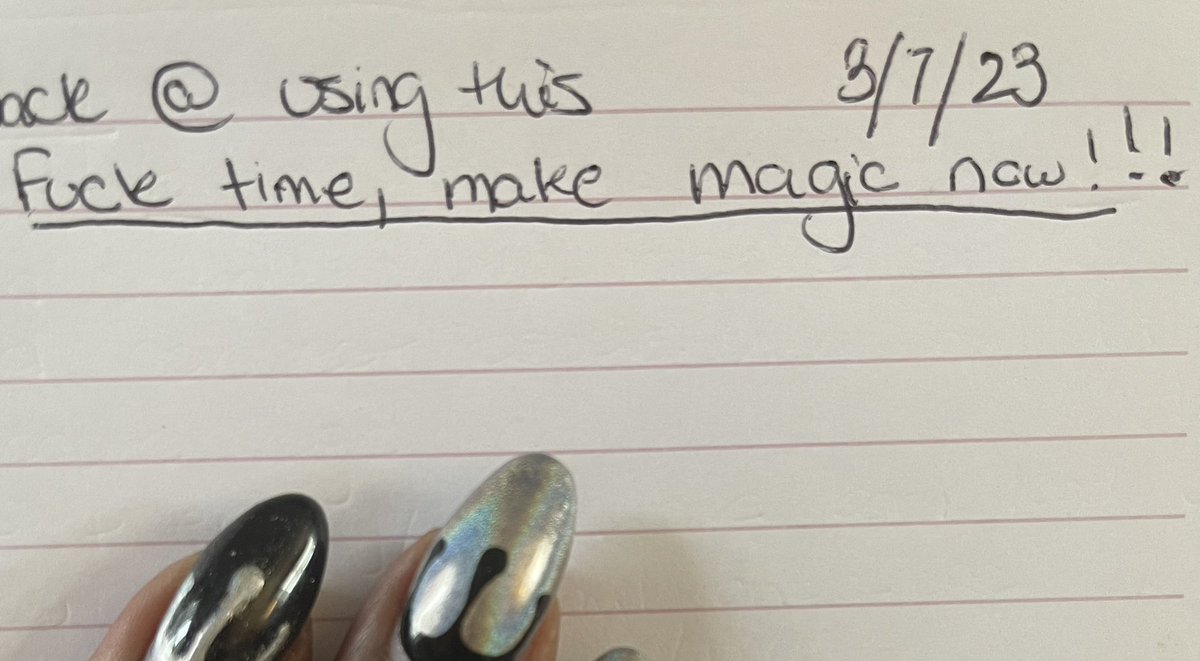 @ using this 3/7/23
Fuck time, make magic now!!!